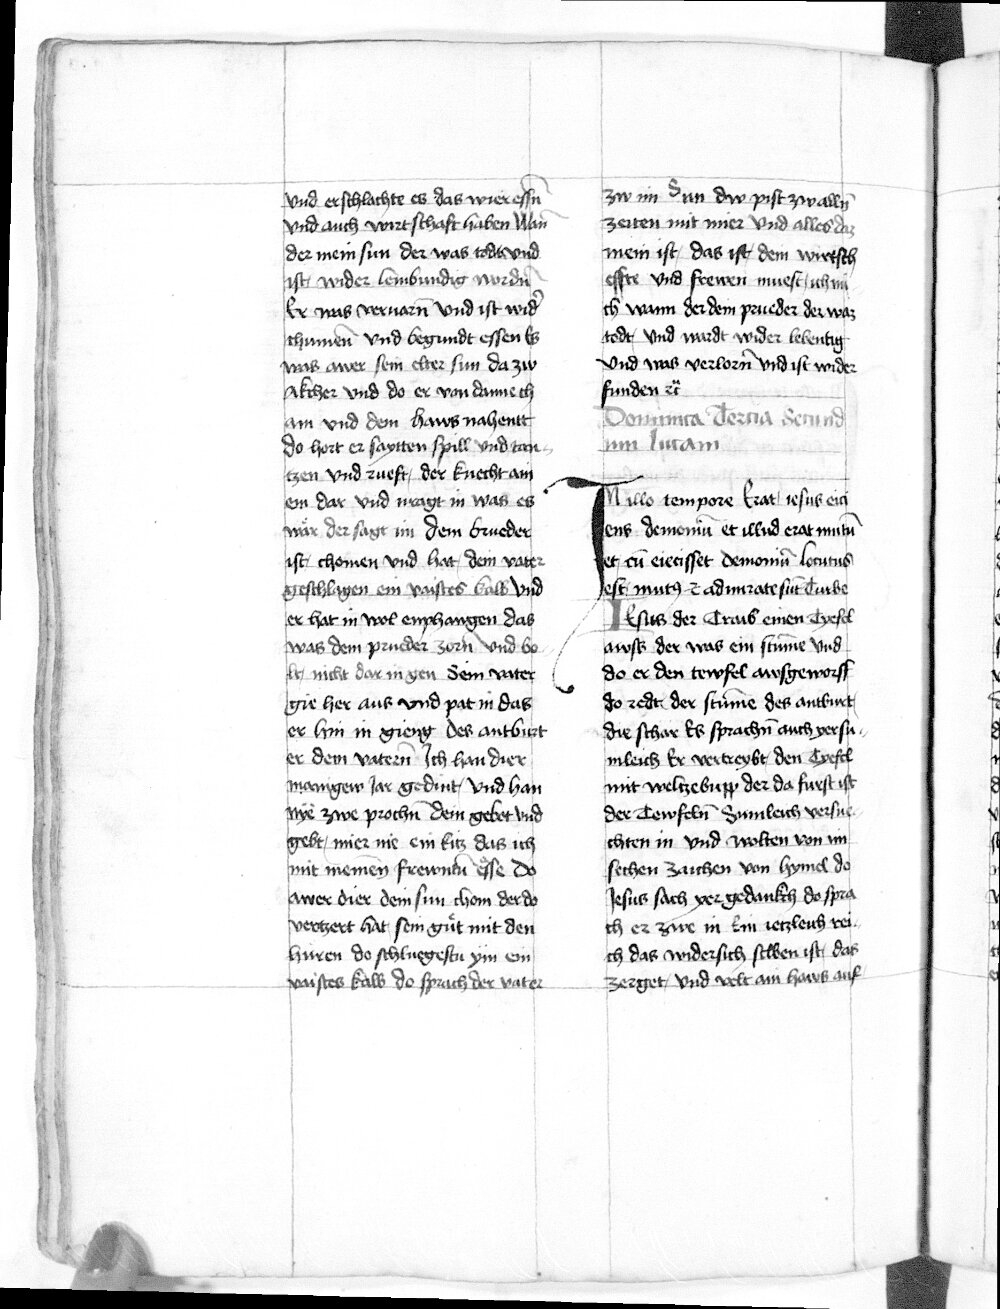 vnd erschlachte es das wier essn̄
vnd auch wirtschaft haben Wan̄
der mein sun der was todt vnd
ist wider lembundig wordn̄
Er was veruarn̄ vnd ist wid'
chumen̄ vnd begundt essen Es
was awer sein elter sun da zw
Akcher vnd do er von danne ch
am vnd dem haws nahentt
do hort er saytten spill vnd tan-
tzen vnd rueft der knecht ain
en dar vnd vragt in was es
wär der sagt im dem brueder
ist chomen vnd hat dein vater
geschlagen ein vaistes kalb vnd
er hat in wol enphangen das
was dem prueder zorn vnd bo
lt nicht dar in gen Sein vater
gie her aus vnd pat in das
er hin in gieng Des antburt
er dem vatern̄ Ich han dier
manigew Iar gedint vnd han
nye zwe prochn̄ dein gebet vnd
gebt mier nie ein kitz das ich
mit meinen frewntn̄ esse Do
awer dier dein sun chom der do
verttzert hat sein gůt mit den
huren do schluegestu ym ein
vaistes kalb do sprach der vater
zw im Sun dw pist zw alln̄
zeiten mit mier vnd alles daz
mein ist das ist dein wirtsch
effte vnd frewen muest ich mi
ch wann der dein prueder der waz
todt vnd wardt wider lebentig
vnd was verlorn̄ vnd ist wider
funden ꝛc̄
Dominica Tercia Secund
um lucam
IN illo tempore Erat iesus eici
ens demoniū et illud erat mutū
et cū eiecisset demoniū locutus
est mutꝰ ꝛ admirate sūt Turbe
IEsus der Traib einen Tyefel
awss der was ein stumͤe vnd
do er den tewfel awsgeworff
do redt der stum̄e des antburt
die schar Es sprachn̄ auch yer su-
mleich Er vertreybt den Tyefel
mit weltzebupp der da furst ist
der Tewfeln̄ Sumleich versue-
chten in vnd wolten von im
sechen zaichen von hymel do
Iesus sach yer gedankch do spra
ch er zwe in Ein ietzleich rei-
ch das widersich selben ist das
zerget vnd velt ain haws auf